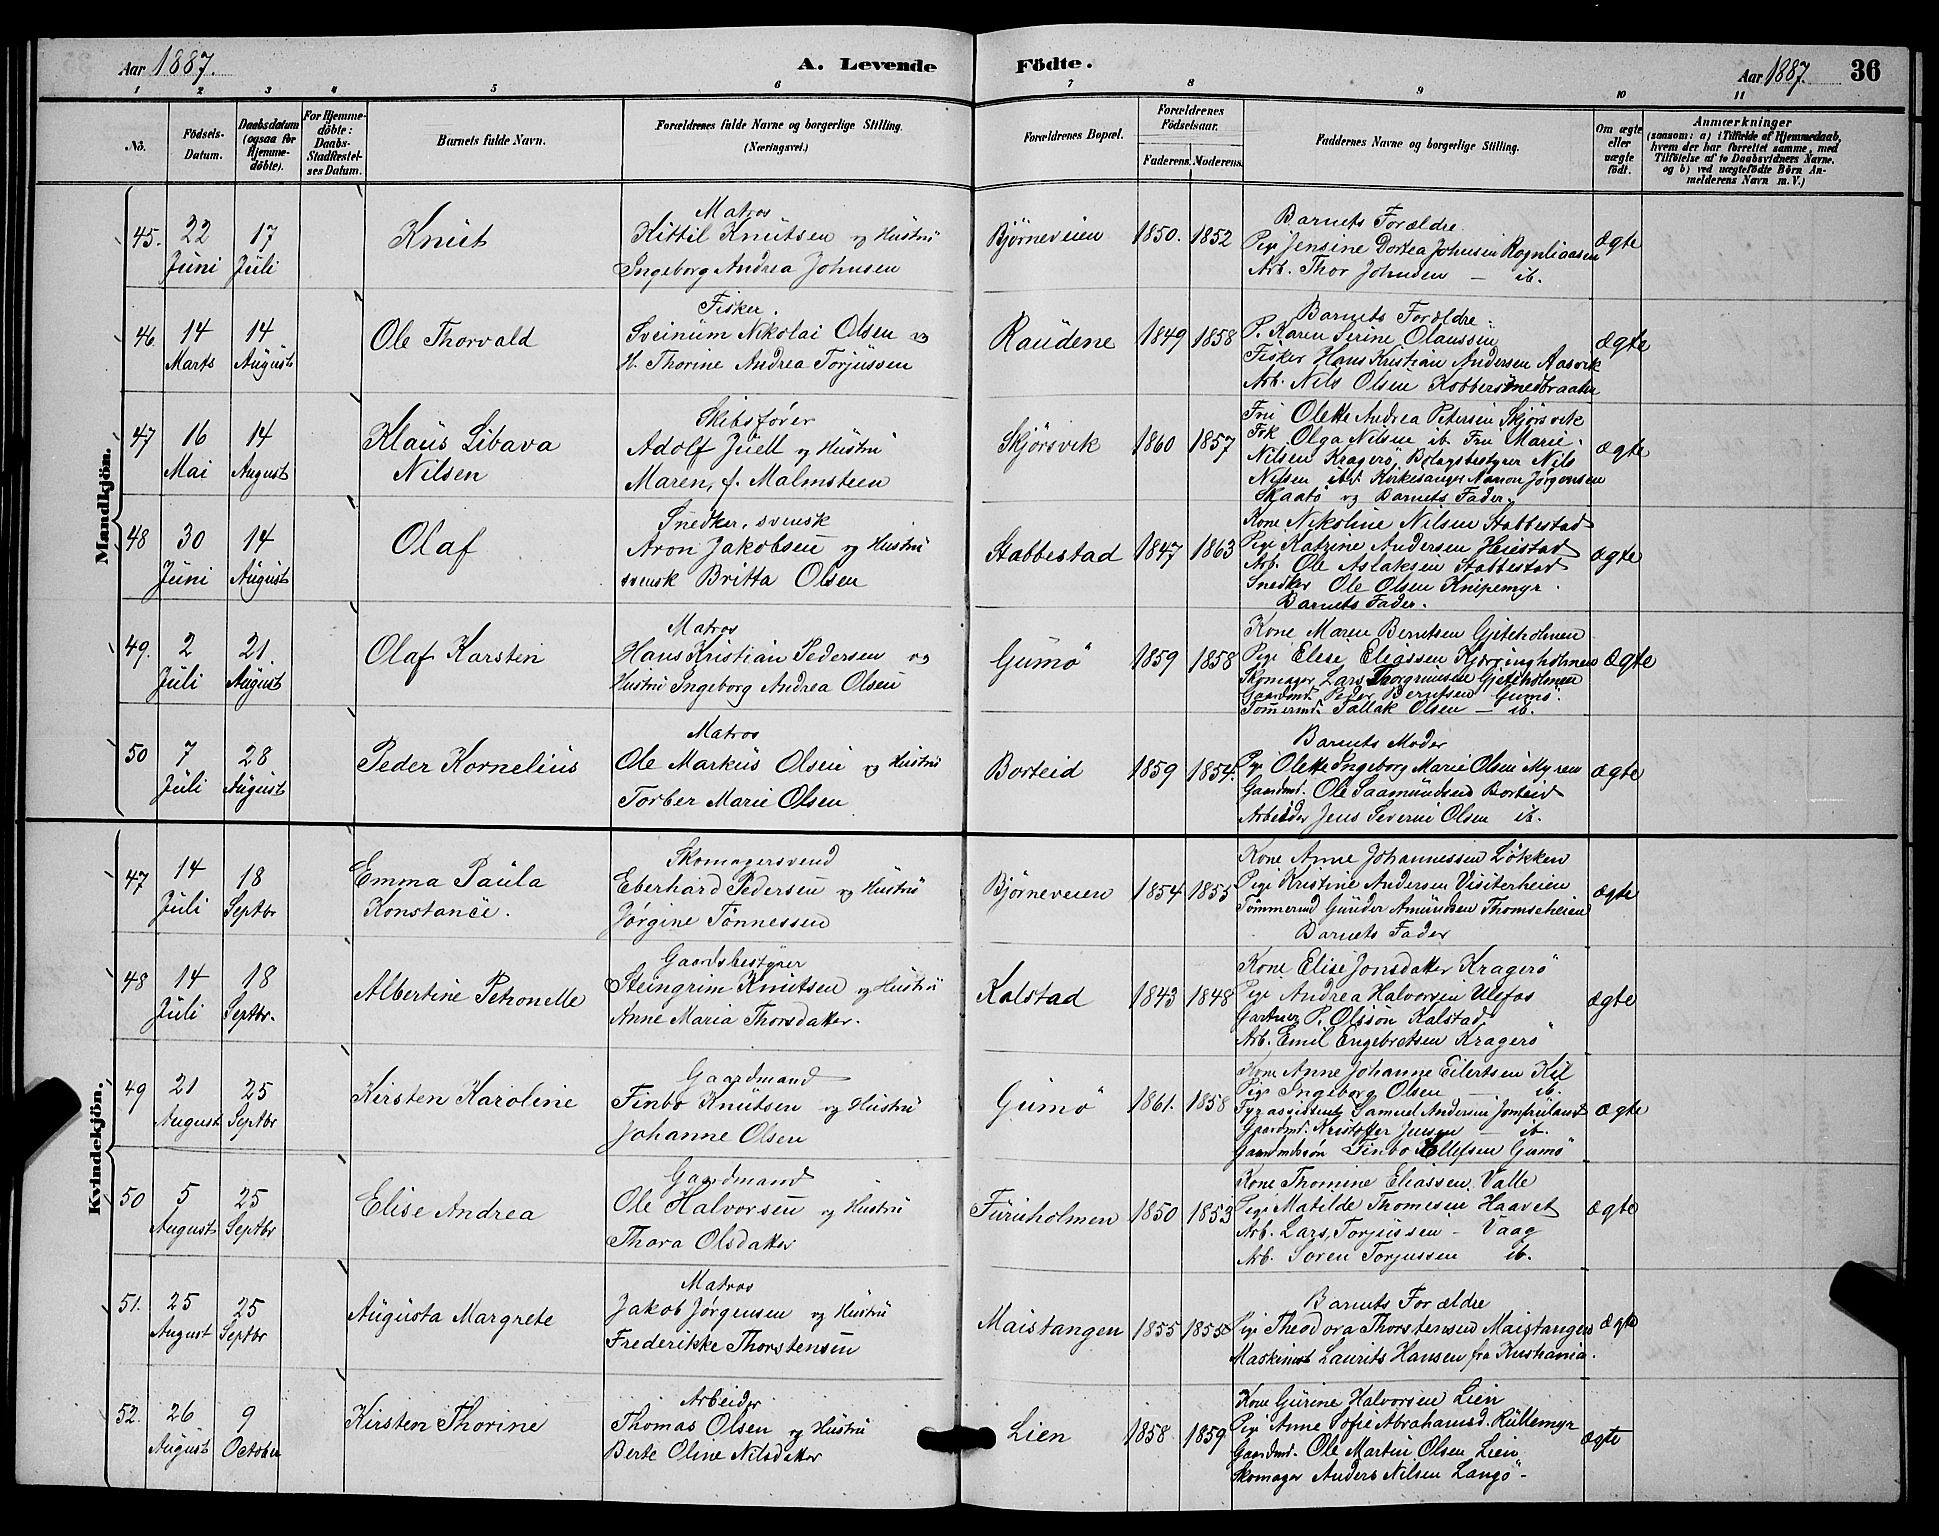 Aar 1887.
A. Levende Födte.
Aar 1887. 36
1 2 3 4 5 6 7 8 9 10 11
No.
Födsels-Datum.
Daabsdatum (ogsaa for Hjemme-döbte).
For Hjemme-döbte: Daabs-Stadfæstel-ses Datum.
Barnets fulde Navn.
Forældrenes fulde Navne og borgerlige Stilling. (Næringsvei.)
Forældrenes Bopæl.
Forældrenes Födselsaar.
Faderens. Moderens.
Faddernes Navne og borgerlige Stilling.
Om ægte eller uægte födt.
Anmærkninger
(saasom: a) i Tilfælde af Hjemmedaab,
hvem der har forrettet samme, med
Tilföielse af to Daabsvidners Navne.
og b) ved uægtefödte Börn An-
melderens Navn m. V.)
Mandkjön.
45. 22 Juni 17 Juli
Knut
Matros
Kittil Knutsen og Hustru
Ingeborg Andrea Johnsen
Bjørneveien 1850. 1852
Barnets Forældre.
Pige Jensine Dortea Johnsen Rognliaasen
Arb. Thor Johnsen — ib.
ægte
46 14 Marts 14 August
Ole Thorvald
Fisker.
Sveinum Nikolai Olsen og
H. Thorine Andrea Torjussen
Raudene 1849 1858
Barnets Forældre.
P. Karen Serine Olaussen
Fisker Hans Kristian Andersen Aasvik
Arb. Nils Olsen Kobbersmedbraaten
ægte
47 16 Mai 14 August
Klaus Libava
Nilsen
Skibsfører
Adolf Juell og Hustru
Maren, f. Malmsteen
Skjørsvik 1860 1857
Fru Olette Andrea Petersen Skjørsvik
Frk. Olga Nilsen ib. Fru Marie
Nilsen Kragerö, Bolagsbestyrer Nils
Nilsen ibd. Kirkesanger Jørgensen
Skaatö og Barnets Fader.
ægte
48 30 Juni 14 August
Olaf
Snedker, svensk
Aron Jakobsen og Hustru
svensk Britta Olsen
Stabbestad 1847 1863
Kone Nikoline Nilsen Stabbestad
Pige Katrine Andersen Heistad
Arb. Ole Aslaksen Stabbestad
Snedker Ole Olsen Knipemyr.
Barnets Fader.
ægte
49. 2 Juli 21. August
Olaf Karsten
Matros
Hans Kristian Pedersen og
Hustru Ingeborg Andrea Olsen
Gumö 1859 1858
Kone Maren Berntsen Gjeteholmen
Pige Elise Eliassen Kjærringholmen
Skomager Lars Torgrimsen Gjeteholmen
Gaardmd. Peder Berntsen Gumö.
Tömermd. Tallak Olsen — ib.
ægte
50 7 Juli 28 August
Peder Kornelius
Matros
Ole Markus Olsen og Hustru
Torber Marie Olsen
Borteid 1859 1854.
Barnets Moder
Pige Olette Ingeborg Marie Olsen Myren
Gaardmd. Ole Saamundsen Borteid
Arbeider Jens Severin Olsen ib.
ægte
Kvindekjön.
47 14 Juli 18 Septbr
Emma Paula
Konstance.
Skomagersvend
Eberhard Pedersen og Hustru
Jørgine Tönnessen
Bjørneveien 1854. 1855
Kone Anne Johannessen Lökken
Pige Kristine Andersen Visiterheien
Tömmermd Gunder Amundsen Thomseheien
Barnets Fader
ægte
48 14 Juli 18 Septbr.
Albertine Petronelle
Gaardsbestyrer
Steingrim Knutsen og Hustru
Anne Maria Thorsdatter.
Kalstad 1843 1848
Kone Elise Jonsdatter Kragerö
Pige Andrea Halvorsen Ulefos
Gartner P. Olsson Kalstad
Arb. Emil Engebretsen Kragerö
ægte
49 21 August 25 Septbr
Kirsten Karoline
Gaardmand
Finbo Knutsen og Hustru
Johanne Olsen
Gumö 1861. 1858
Kone Anne Johanne Eilertsen Kil
Pige Ingeborg Olsen — ib.
Fyrassistent Samuel Andersen Jomfruland
Gaardmd. Kristoffer Jensen — ib.
Gaardmdssön Finbo Ellefsen Gumö
ægte
50 5 August 25 Septbr
Elise Andrea
Gaardmand
Ole Halvorsen og Hustru
Thora Olsdatter
Furuholmen 1850 1853
Kone Thomine Eliassen Valle
Pige Matilde Thomesen Haavet
Arb. Lars Torjussen - Vaag
Arb. Soren Torjussen ib.
ægte
51. 25 August 25 Septbr
Augusta Margrete
Matros
Jakob Jørgensen og Hustru
Frederikke Thorstensen
Maistangen 1855 1855
Barnets Forældre
Pige Theodora Thorstensen Maistangen
Maskinist Laurits Hansen fra Kristiania.
ægte
52. 26 August 9 October
Kirsten Thorine
Arbeider
Thomas Olsen og Hustru
Berte Oline Nilsdatter
Lien 1858 1859
Kone Gurine Halvorsen Lien
Pige Anne Sofie Abrahamsd. Rullemyr
Gaardmd. Ole Martin Olsen Lien
Skomager Anders Nilsen Langö -
ægte